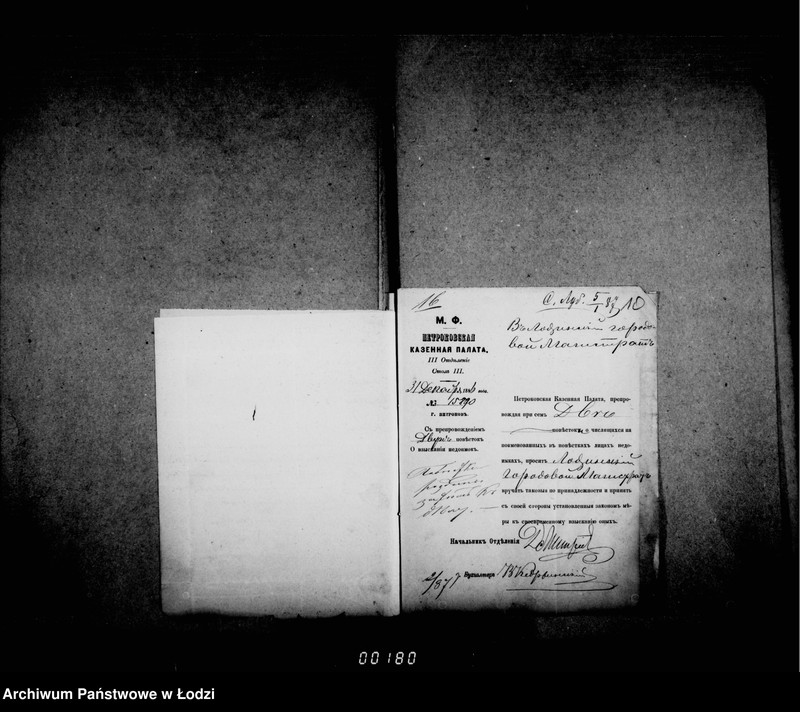 16
10
М. Ф.
ПЕТРОКОВСКАЯ
КАЗЕННАЯ ПАЛАТА.
III Отдѣленіе
Столъ III.
31 Декабря
№ 15890
г. ПЕТРОКОВЪ.
Съ препровожденіемъ
Двухъ повѣстокъ
О взысканіи недоимокъ.
Въ Лодзинскій городо-
вой Магистратъ
Петроковская Казенная Палата, препро-
вождая при семъ Двѣ
повѣстки о числящихся на
поименованныхъ въ повѣсткахъ лицахъ недо-
имкахъ, проситъ Лодзинскій
Городовой Магистратъ
вручить таковыя по принадлежности и принять
съ своей стороны установленныя закономъ мѣ-
ры къ своевременному взысканію оныхъ.
Начальникъ Отдѣленія
Бухгалтеръ
00180
Archiwum Państwowe w Łodzi